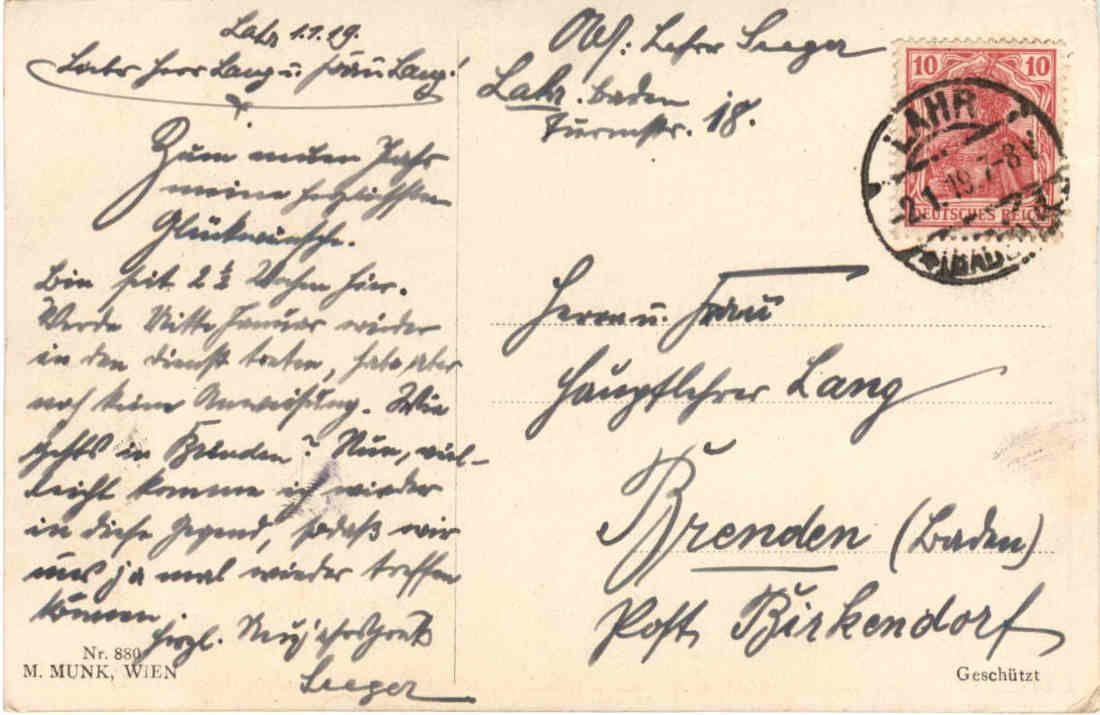 Lahr 1.1.19.
Liebe Herr Lang u. Frau Lang!
Zum neuen Jahr
meine herzlichsten
Glückwünsche.
Bin seit 2 ½ Wochen hier.
Werde Mitte Januar wieder
in den Dienst treten, habe aber
noch keine Anweisung. Wie
gehts in Brenden? Nun, viel-
leicht komme ich wieder
in diese Gegend, sodaß wir
uns ja mal wieder treffen
können.
Herzl. Neujahrsgruß
Seeger
Nr. 880
M. MUNK, WIEN
Abs: Lehrer Seeger
Lahr. Baden
Turmstr. 18.
10 10
DEUTSCHES REICH
LAHR
-2.1.19.7-8V
(BADEN)
Herrn u. Frau
Hauptlehrer Lang
Brenden (Baden)
Post Birkendorf
Geschützt